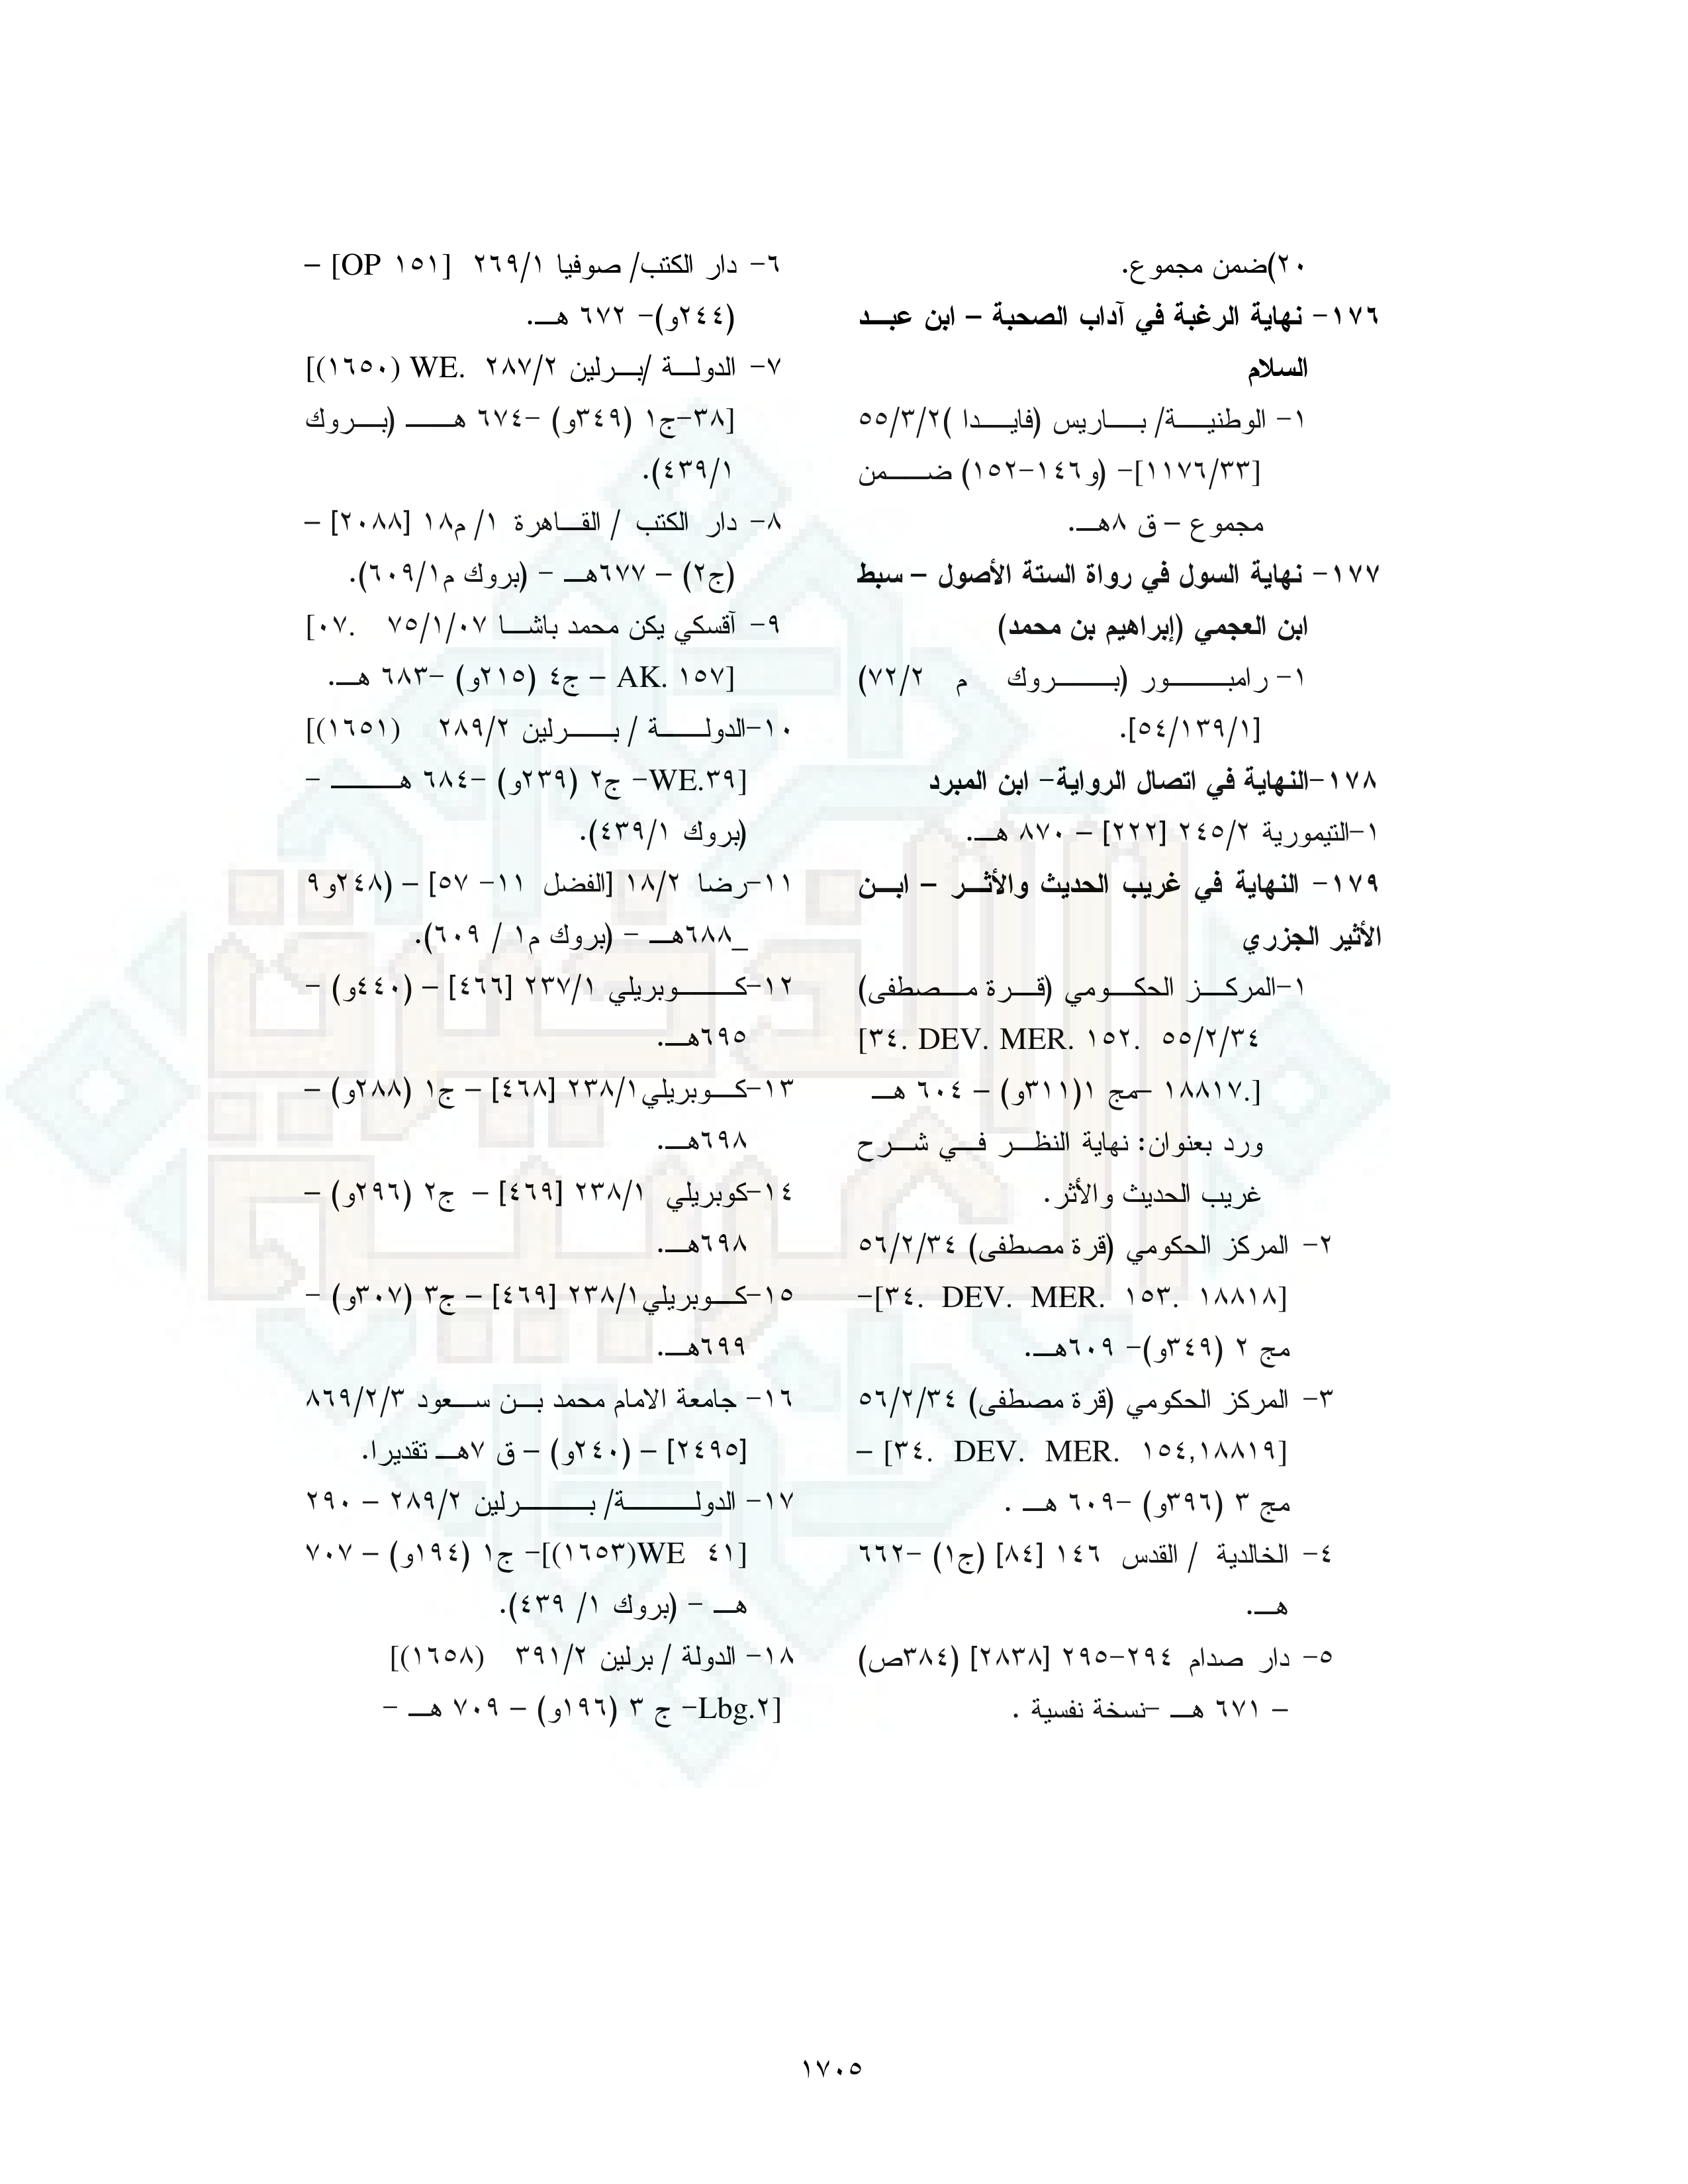 ٢٠)ضمن مجموع.
١٧٦- نهاية الرغبة في آداب الصحبة – ابن عبد
السلام
١- الوطنية/ باريس (فايدا )٥٥/٣/٢
[١١٧٦/٣٣]- (و١٤٦-١٥٢) ضمن
مجموع – ق ٨هـ.
١٧٧- نهاية السول في رواة الستة الأصول – سبط
ابن العجمي (إبراهيم بن محمد)
١- رامبور (بروك م ٧٢/٢)
[٥٤/١٣٩/١].
١٧٨-النهاية في اتصال الرواية- ابن المبرد
١-التيمورية ٢٤٥/٢ [٢٢٢] – ٨٧٠ هـ.
١٧٩- النهاية في غريب الحديث والأثر – ابن
الأثير الجزري
١-المركز الحكومي (قرة مصطفى)
٥٥/٢/٣٤ [٣٤. DEV. MER. ١٥٢.
١٨٨١٧.] –مج ١(٣١١و) – ٦٠٤ هـ
ورد بعنوان: نهاية النظر في شرح
غريب الحديث والأثر.
٢- المركز الحكومي (قرة مصطفى) ٥٦/٢/٣٤
[٣٤. DEV. MER. ١٥٣. ١٨٨١٨]-
مج ٢ (٣٤٩و)- ٦٠٩هـ.
٣- المركز الحكومي (قرة مصطفى) ٥٦/٢/٣٤
[٣٤. DEV. MER. ١٥٤,١٨٨١٩] –
مج ٣ (٣٩٦و) -٦٠٩ هـ .
٤- الخالدية / القدس ١٤٦ [٨٤] (ج١) -٦٦٢
هـ.
٥- دار صدام ٢٩٤-٢٩٥ [٢٨٣٨] (٣٨٤ص)
– ٦٧١ هـ -نسخة نفسية .
٦- دار الكتب/ صوفيا ٢٦٩/١ [OP ١٥١] –
(٢٤٤و)- ٦٧٢ هـ.
٧- الدولة /برلين ٢٨٧/٢ [(١٦٥٠) WE.
٣٨]-ج١ (٣٤٩و) -٦٧٤ هـ (بروك
٤٣٩/١).
٨- دار الكتب / القاهرة ١/ م١٨ [٢٠٨٨] –
(ج٢) – ٦٧٧هـ - (بروك م٦٠٩/١).
٩- آقسكي يكن محمد باشا ٧٥/١/٠٧ [٠٧.
AK. ١٥٧] – ج٤ (٢١٥و) -٦٨٣ هـ.
١٠-الدولة / برلين ٢٨٩/٢ [(١٦٥١)
WE.٣٩]- ج٢ (٢٣٩و) -٦٨٤ هـ -
(بروك ٤٣٩/١).
١١-رضا ١٨/٢ [الفضل ١١- ٥٧] – (٢٤٨و٩
_٦٨٨هـ - (بروك م١ / ٦٠٩).
١٢-كوبريلي ٢٣٧/١ [٤٦٦] – (٤٤٠و) -
٦٩٥هـ.
١٣-كوبريلي٢٣٨/١ [٤٦٨] – ج١ (٢٨٨و) –
٦٩٨هـ.
١٤-كوبريلي ٢٣٨/١ [٤٦٩] – ج٢ (٢٩٦و) –
٦٩٨هـ.
١٥-كوبريلي٢٣٨/١ [٤٦٩] – ج٣ (٣٠٧و) -
٦٩٩هـ.
١٦- جامعة الامام محمد بن سعود ٨٦٩/٢/٣
[٢٤٩٥] – (٢٤٠و) – ق ٧هـ تقديرا.
١٧- الدولة/ برلين ٢٨٩/٢ – ٢٩٠
[(١٦٥٣)WE ٤١]- ج١ (١٩٤و) – ٧٠٧
هـ - (بروك ١/ ٤٣٩).
١٨- الدولة / برلين ٣٩١/٢ [(١٦٥٨)
Lbg.٢]- ج ٣ (١٩٦و) – ٧٠٩ هـ -
١٧٠٥